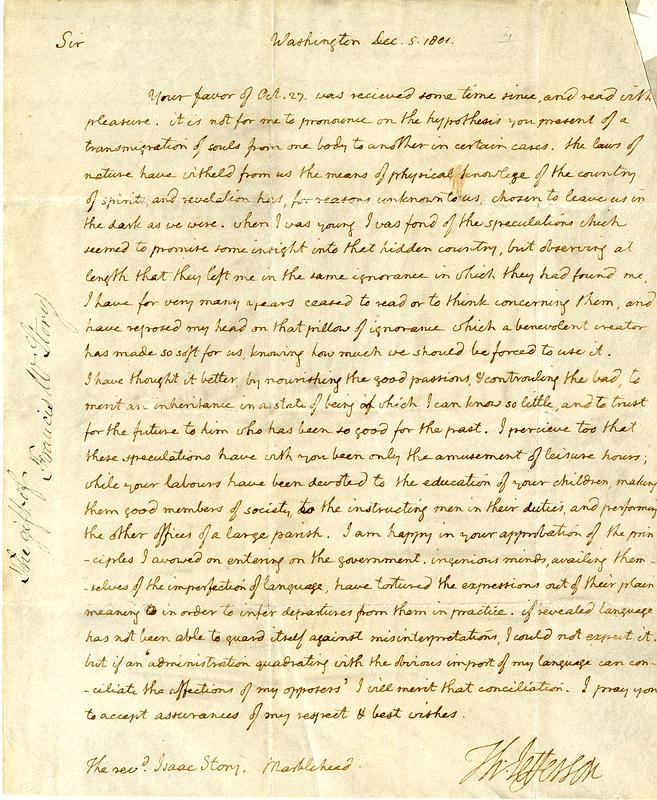 Sir
Washington Dec. 5. 1801.
Your favor of Oct. 27. was recieved some time since, and read with
pleasure. it is not for me to pronounce on the hypothesis you present of a
transmigration of souls from one body to another in certain cases. the laws of
nature have witheld from us the means of physical knowlege of the country
of spirits, and revelation has, for reasons unknown to us, chosen to leave us in
the dark as we were. when I was young I was fond of the speculations which
seemed to promise some insight into that hidden country, but observing at
length that they left me in the same ignorance in which they had found me,
I have for very many years ceased to read or to think concerning them, and
have reposed my head on that pillow of ignorance which a benevolent creator
has made so soft for us, knowing how much we should be forced to use it.
I have thought it better, by nourishing the good passions, & controuling the bad, to
merit an inheritance in a state of being of which I can know so little, and to trust
for the future to him who has been so good for the past. I percieve too that
these speculations have with you been only the amusement of leisure hours;
while your labours have been devoted to the education of your children, making
them good members of society, to the instructing men in their duties, and performing
the other offices of a large parish. I am happy in your approbation of the prin-
-ciples I avowed on entering on the government. ingenious minds, availing them-
-selves of the imperfection of language, have tortured the expressions out of their plain
meaning in order to infer departures from them in practice. if revealed language
has not been able to guard itself against misinterpretations, I could not expect it.
but if an 'administration quadrating with the obvious import of my language can con-
-ciliate the affections of my opposers' I will merit that conciliation. I pray you
to accept assurances of my respect & best wishes.
Th: Jefferson
The revd. Isaac Story. Marblehead.
The gift of
Francis W. Story